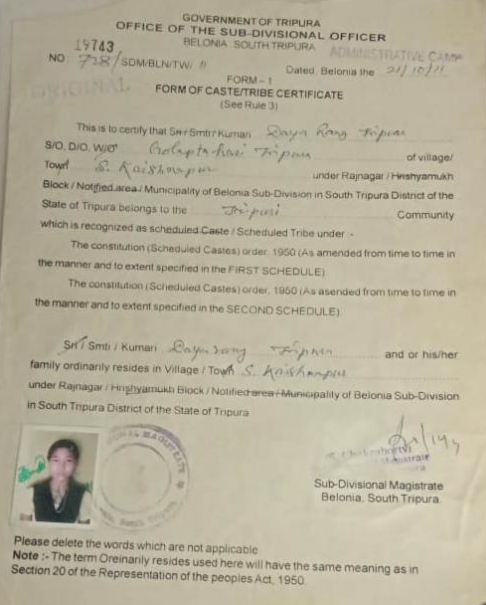 GOVERNMENT OF TRIPURA
OFFICE OF THE SUB-DIVISIONAL OFFICER
BELONIA SOUTH TRIPURA
ADMINISTRATIVE CAMP
19743
NO. 728/SDM/BLN/TW/ 11 Dated, Belonia the 21/10/11
ORIGINAL
FORM - 1
FORM OF CASTE/TRIBE CERTIFICATE
(See Rule 3)
This is to certify that Sri / Smti / Kumari Daya Rang Tripura
S/O, D/O, W/O Tripura of village/
Town S. Kaishnapur under Rajnagar / Hrishyamukh
Block / Notified area / Municipality of Belonia Sub-Division in South Tripura District of the
State of Tripura belongs to the Tripuri Community
which is recognized as scheduled Caste / Scheduled Tribe under :-
The constitution (Scheduled Castes) order, 1950 (As amended from time to time in
the manner and to extent specified in the FIRST SCHEDULE).
The constitution (Scheduled Castes) order, 1950 (As asended from time to time in
the manner and to extent specified in the SECOND SCHEDULE).
Sri / Smti / Kumari Dayarang Tripura and or his/her
family ordinarily resides in Village / Town S. Kaishnapur
under Rajnagar / Hrishyamukh Block / Notified area / Municipality of Belonia Sub-Division
in South Tripura District of the State of Tripura
Sub-Divisional Magistrate
Belonia, South Tripura.
Please delete the words which are not applicable
Note :- The term Oreinarily resides used here will have the same meaning as in
Section 20 of the Representation of the peoples Act, 1950.